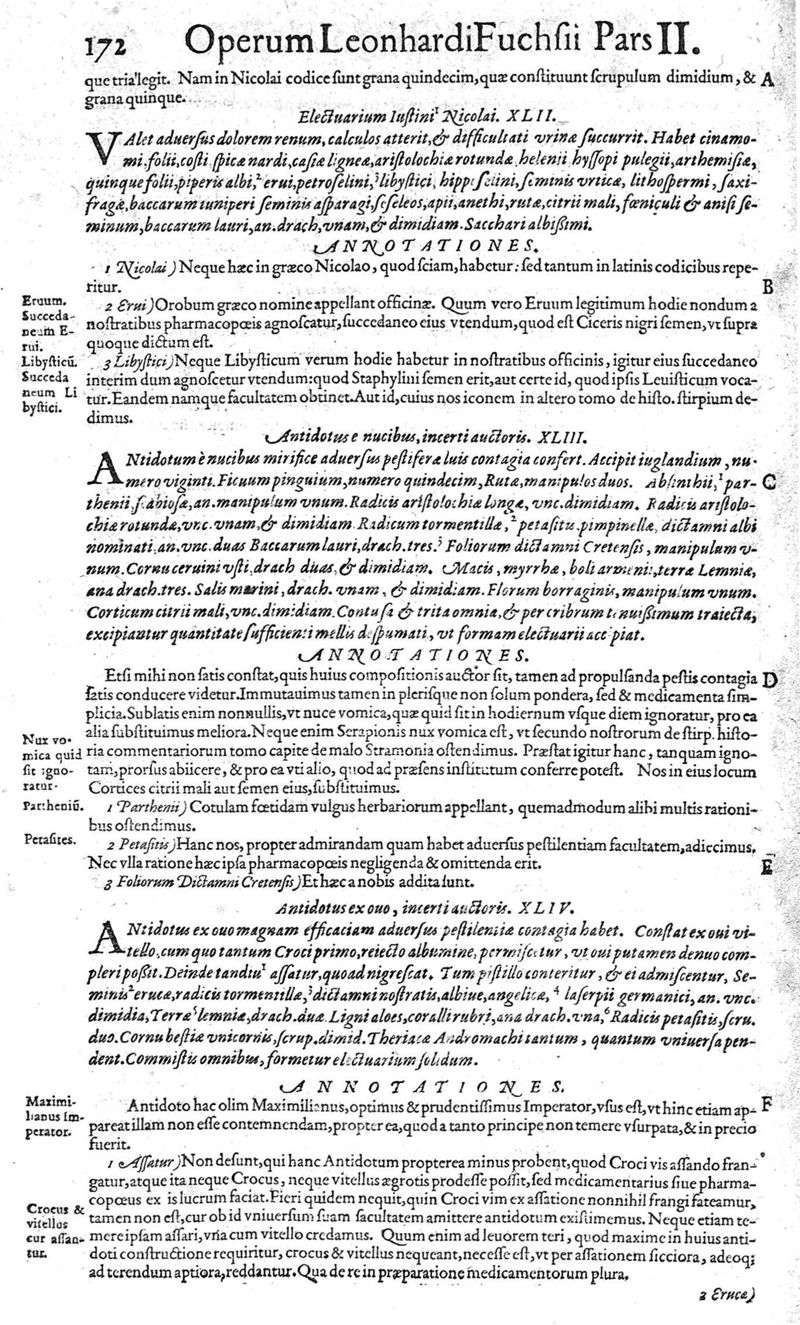 172 Operum Leonhardi Fuchſii Pars II.
que tria legit. Nam in Nicolai codice ſunt grana quindecim, quæ conſtituunt ſcrupulum dimidium, & A
grana quinque.
Electuarium Iuſtini¹ Nicolai. XLII.
VAlet aduerſus dolorem renum, calculos atterit, & difficultati vrinæ ſuccurrit. Habet cinamo-
mi, folii, coſti, ſpicæ nardi, caſiæ ligneæ, ariſtolochiæ rotundæ, helenii, hyſſopi pulegii, arthemiſiæ,
quinquefolii, piperis albi,² erui, petroſelini,³ libyſtici, hippoſelini, ſeminis vrticæ, lithoſpermi, ſaxi-
fragæ, baccarum iuniperi ſeminis aſparagi, ſeſeleos, apii, anethi, rutæ, citrii mali, fœniculi & aniſi ſe-
minum, baccarum lauri, an. drach, vnam, & dimidiam. Sacchari albiſſimi.
ANNOTATIONES.
1 Nicolai) Neque hæc in græco Nicolao, quod ſciam, habetur: ſed tantum in latinis codicibus repe-
ritur. B
Eruum.
Succeda-
neum E-
rui.
2 Erui) Orobum græco nomine appellant officinæ. Quum vero Eruum legitimum hodie nondum a
noſtratibus pharmacopœis agnoſcatur, ſuccedaneo eius vtendum, quod eſt Ciceris nigri ſemen, vt ſupra
quoque dictum eſt.
Libyſticū.
Succeda
neum Li
byſtici.
3 Libyſtici) Neque Libyſticum verum hodie habetur in noſtratibus officinis, igitur eius ſuccedaneo
interim dum agnoſcetur vtendum: quod Staphylini ſemen erit, aut certe id, quod ipſis Leuiſticum voca-
tur. Eandem namque facultatem obtinet. Aut id, cuius nos iconem in altero tomo de hiſto. ſtirpium de-
dimus.
Antidotus e nucibus, incerti auctoris. XLIII.
ANtidotum è nucibus mirifice aduerſus peſtiferæ luis contagia confert. Accipit iuglandium, nu-
mero viginti. Ficuum pinguium, numero quindecim, Rutæ, manipulos duos. Abſinthii,¹ par- C
thenii, ſcabioſæ, an. manipulum vnum. Radicis ariſtolochiæ longæ, vnc. dimidiam. Radicis ariſtolo-
chiæ rotundæ, vnc. vnam, & dimidiam. Radicum tormentillæ,² petaſitis, pimpinellæ, dictamni albi
nominati, an. vnc. duas Baccarum lauri, drach. tres.³ Foliorum dictamni Cretenſis, manipulum v-
num. Cornu ceruini vſti, drach duas, & dimidiam. Macis, myrrhæ, boli armenii, terræ Lemniæ,
ana drach. tres. Salis marini, drach. vnam, & dimidiam. Florum borraginis, manipulum vnum.
Corticum citrii mali, vnc. dimidiam. Contuſa & trita omnia, & per cribrum tenuiſſimum traiecta,
excipiantur quantitate ſufficienti mellis deſpumati, vt formam electuarii accipiat.
ANNOTATIONES.
Etſi mihi non ſatis conſtat, quis huius compoſitionis auctor ſit, tamen ad propulſanda peſtis contagia D
ſatis conducere videtur. Immutauimus tamen in pleriſque non ſolum pondera, ſed & medicamenta ſim-
plicia. Sublatis enim nonnullis, vt nuce vomica, quæ quid ſit in hodiernum vſque diem ignoratur, pro ea
alia ſubſtituimus meliora. Neque enim Serapionis nux vomica eſt, vt ſecundo noſtrorum de ſtirp. hiſto-
Nux vo-
mica quid
ſit igno-
ratur.
ria commentariorum tomo capite de malo Stramonia oſtendimus. Præſtat igitur hanc, tanquam igno-
tam, prorſus abiicere, & pro ea vti alio, quod ad præſens inſtitutum conferre poteſt. Nos in eius locum
Cortices citrii mali aut ſemen eius, ſubſtituimus.
Partheniū.
1 Parthenii) Cotulam fœtidam vulgus herbariorum appellant, quemadmodum alibi multis rationi-
bus oſtendimus.
Petaſites.
2 Petaſitis) Hanc nos, propter admirandam quam habet aduerſus peſtilentiam facultatem, adiecimus.
Nec vlla ratione hæc ipſa pharmacopœis negligenda & omittenda erit. E
3 Foliorum Dictamni Cretenſis) Et hæc a nobis addita ſunt.
Antidotus ex ouo, incerti auctoris. XLIV.
ANtidotus ex ouo magnam efficaciam aduerſus peſtilentiæ contagia habet. Conſtat ex oui vi-
tello, cum quo tantum Croci primo, reiecto albumine, permiſcetur, vt oui putamen denuo com-
pleri poſſit. Deinde tandiu¹ aſſatur, quoad nigreſcat. Tum piſtillo conteritur, & ei admiſcentur, Se-
minis² erucæ, radicis tormentillæ,³ dictamni noſtratis, albiue, angelicæ,⁴ laſerpii germanici, an. vnc.
dimidia, Terræ⁵ lemniæ, drach. duæ. Ligni aloes, coralli rubri, ana drach. vna,⁶ Radicis petaſitis, ſcru.
duo. Cornu beſtiæ vnicornis, ſcrup. dimid. Theriacæ Andromachi tantum, quantum vniuerſa pen-
dent. Commiſtis omnibus, formetur electuarium ſolidum.
ANNOTATIONES.
Maximi-
lianus Im-
perator.
Antidoto hac olim Maximilianus, optimus & prudentiſſimus Imperator, vſus eſt, vt hinc etiam ap- F
pareat illam non eſſe contemnendam, propterea, quod a tanto principe non temere vſurpata, & in precio
fuerit.
1 Aſſatur) Non deſunt, qui hanc Antidotum propterea minus probent, quod Croci vis aſſando fran-
gatur, atque ita neque Crocus, neque vitellus ægrotis prodeſſe poſſit, ſed medicamentarius ſiue pharma-
copœus ex iis lucrum faciat. Fieri quidem nequit, quin Croci vim ex aſſatione nonnihil frangi fateamur,
Crocus &
vitellus
cur aſſan-
tur.
tamen non eſt, cur ob id vniuerſum ſuam facultatem amittere antidotum exiſtimemus. Neque etiam te-
mere ipſam aſſari, vna cum vitello credamus. Quum enim ad leuorem teri, quod maxime in huius anti-
doti conſtructione requiritur, crocus & vitellus nequeant, neceſſe eſt, vt per aſſationem ſicciora, adeoq;
ad terendum aptiora, reddantur. Qua de re in præparatione medicamentorum plura.
2 Erucæ)